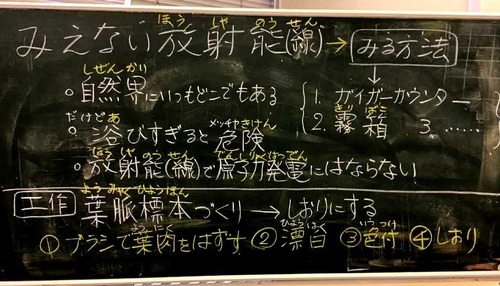 みえない放射能(線)→みる方法
ほう しゃ のう せん
しぜんかい
。自然界にいつもどこでもある
1. ガイガーカウンター
だけど あ メッチャきけん
。浴びすぎると危険
きり ばこ
2. 霧箱 3. ……
ほう しゃ のう せん
。放射能(線)で原子力発電にはならない
ようみゃくひょうほん
工作 葉脈標本づくり→しおりにする
ようにく ひょうはく いろつけ
①ブラシで葉肉をはずす ②漂白 ③色付 ④しおり